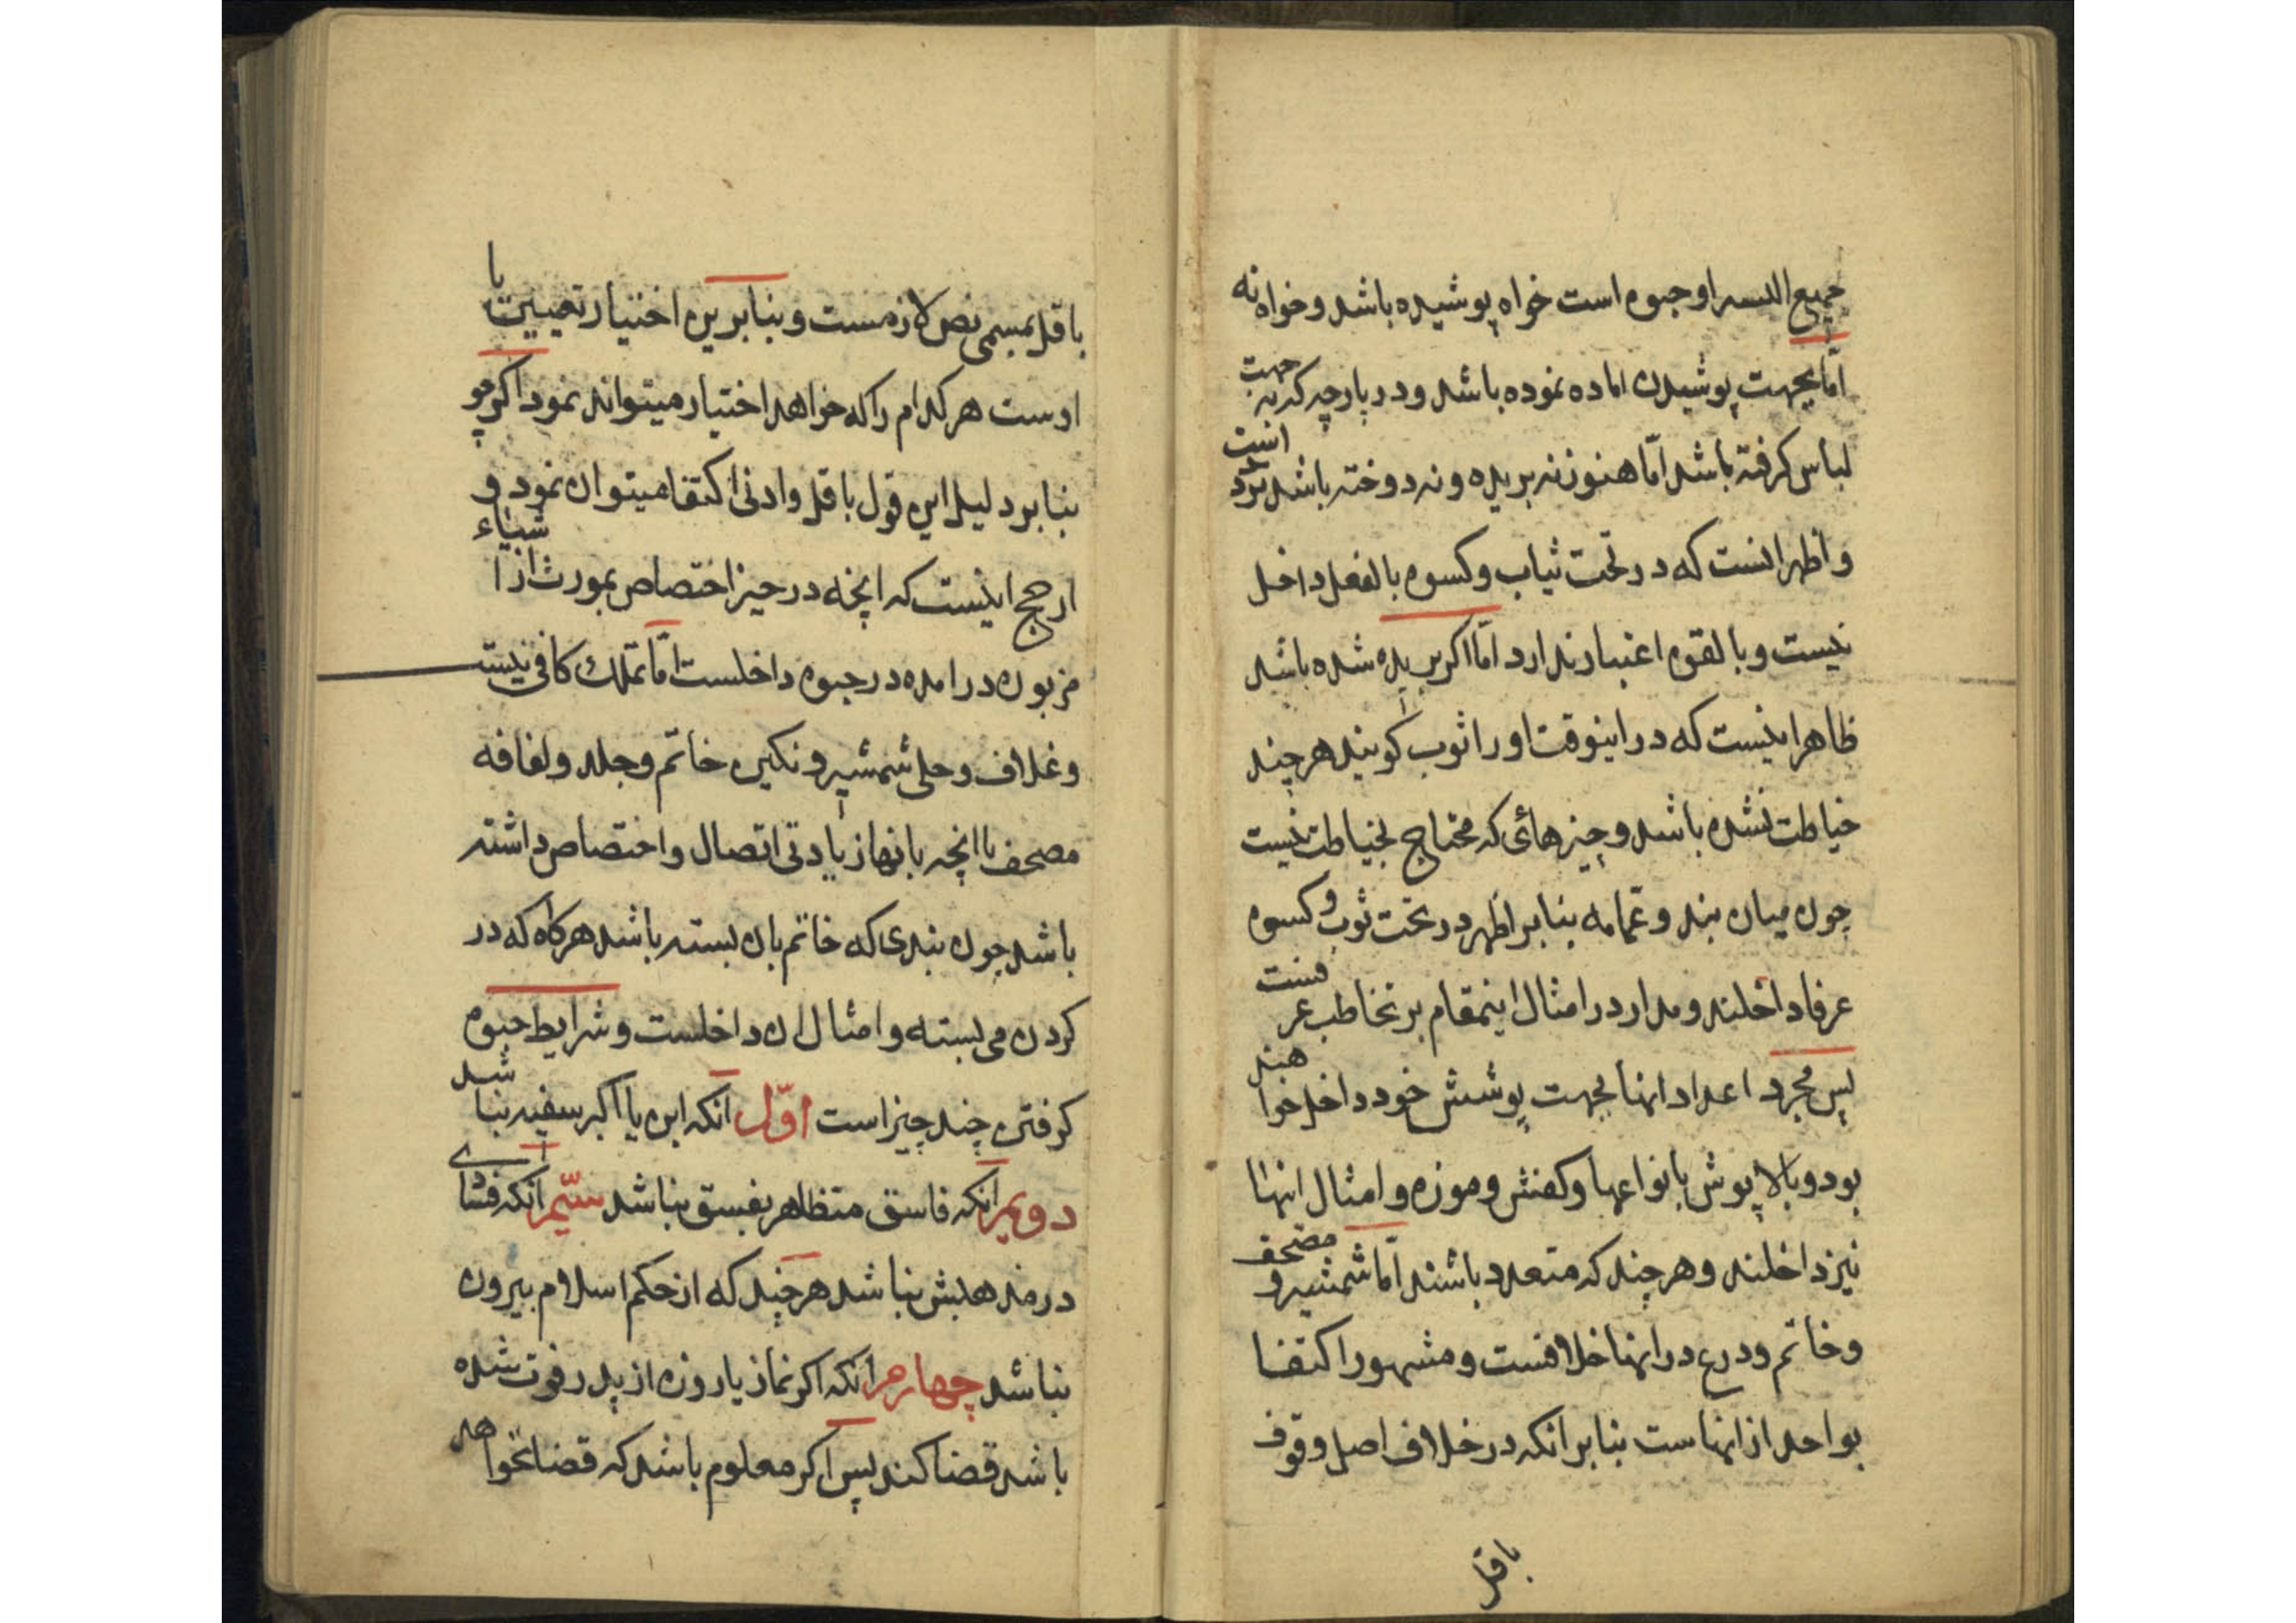 جمیع البسه او حبوه است خواه پوشیده باشد و خواه نه
امّا بجهت پوشیدن اماده نموده باشد و در پارچه که به جهت
لباس کرفته باشد امّا هنوز نه بریده و نه دوخته باشد تردد است
و اظهر انست که در تحت ثیاب و کسوه بالفعل داخل
نیست و بالقوه اعتبار ندارد امّا اکر بریده شده باشد
ظاهر اینست که در اینوقت او را ثوب کویند هر چند
خیاطت نشده باشد و چیزهائی که محتاج بخیاطت نیست
چون میان بند و عمامه بنابر اظهر در تحت ثوب و کسوه
عرفا داخلند و مدار در امثال اینمقام بر تخاطب عرفست
پس مجرد اعداد انها بجهت پوشش خود داخل خواهند
بود و بالاپوش بانواعها و کفش و موزه و امثال انها
نیز داخلند و هر چند که متعدد باشند امّا شمشیر و مصحف
و خاتم و درع در انها خلافست و مشهور اکتفا
بواحد از انهاست بنابر انکه در خلاف اصل وقوف
باقل
باقل مسمی نص لازمست و بنابرین اختیار تعیین با
اوست هر کدام را که خواهد اختیار میتواند نمود اکرچو
بنابر دلیل این قول باقل و ادنی اکتفا میتوان نمود و
ارجح اینست که انچه در حیز اختصاص بمورث از اشیاء
مزبوره در امده در حبوه داخلست امّا تملک کافی نیست
و غلاف و حلی شمشیر و نکین خاتم و جلد و لفافه
مصحف با انچه بانها زیادتی اتصال و اختصاص داشته
باشد چون بندی که خاتم بان بسته باشد هرکاه که در
کردن می بسته و امثال ان داخلست و شرایط حبوه
کرفتن چند چیز است اوّل انکه ابن یا اکبر سفیه نباشد
دویم انکه فاسق متظاهر بفسق نباشد سیّم انکه فسادی
در مذهبش نباشد هر چند که از حکم اسلام بیرون
نباشد چهارم انکه اکر نماز یا روزه از پدر فوت شده
باشد قضا کند پس اکر معلوم باشد که قضا نخواهد